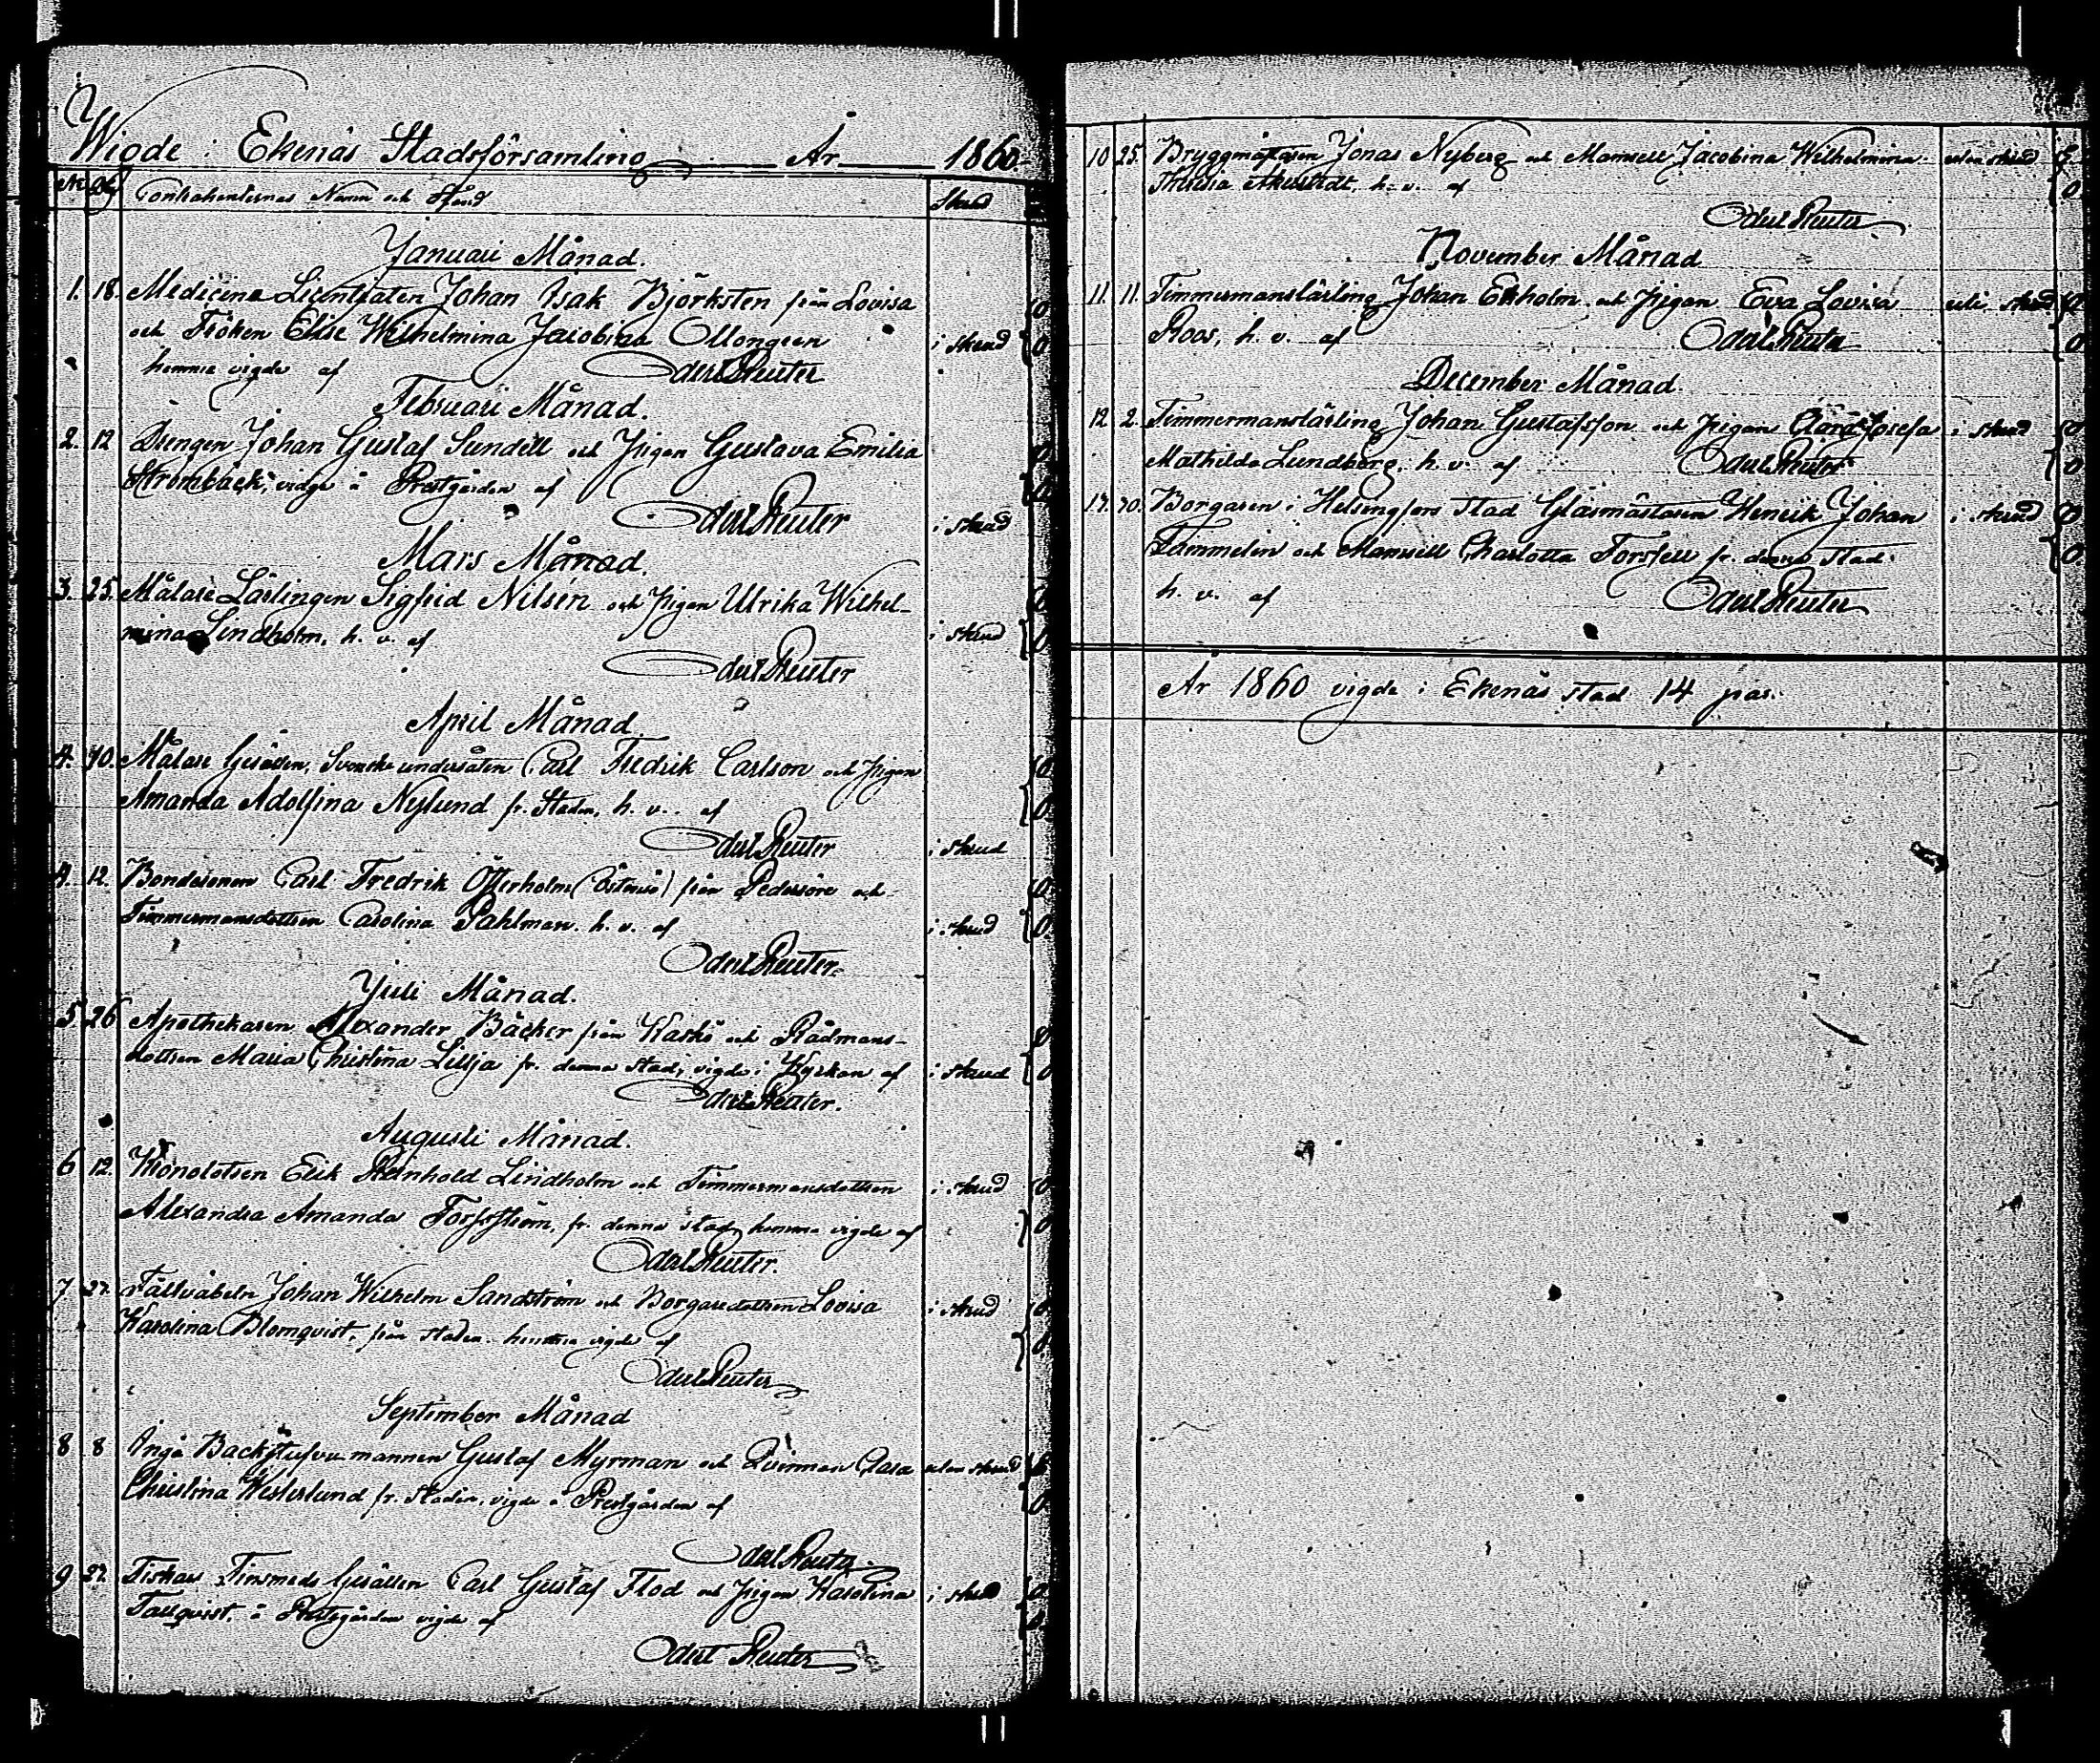 Wigde i Ekenäs Stadsförsamling År 1860.
No Dg Contrahenternas Namn och Stånd Skrud
Januari Månad.
1. 18. Medicine Licentiaten Johan Isak Björksten från Lovisa
och Fröken Elise Wilhelmina Jacobina Mongeen i skrud
hemma vigde af Odert Reuter
Februari Månad.
2. 12 Drengen Johan Gustaf Sundell och Pigan Gustava Emilia
Strömbäck, vidge å Prestgården af
Odert Reuter i skrud
Mars Månad.
3. 25. Målare Lärlingen Sigfrid Nilsén och Pigan Ulrika Wilhel-
mina Lindholm, h. v. af i skrud
Odert Reuter
April Månad
4. 10. Målare Gesällen, Svenske undersåten Carl Fredrik Carlson och Pigan
Amanda Adolfina Nylund fr. Staden, h. v. af
Odert Reuter i skrud
4. 12. Bondesonen Carl Fredrik Österholm från Pedersöre och
Timmermansdottren Carolina Pahlman. h. v. af i skrud
Odert Reuter.
Juli Månad.
5. 26 Apothekaren Alexander Bäcker från Kaskö och Rådmans-
dottren Maria Christina Lilja fr. denna stad, vigde i Kyrkan af i skrud
Odert Reuter.
Augusti Månad.
6 12. Kronolotsen Erik Reinhold Lindholm och Timmermansdottren i skrud
Alexandra Amanda Forsström, fr. denna stad, hemma vigde af
Odert Reuter.
7 27. Fältväbeln Johan Wilhelm Sandström och Borgaredottren Lovisa i skrud
Karolina Blomqvist, från staden. hemma vigde af
Odert Reuter
September Månad
8 8 Ingå Backstufvumannen Gustaf Myrman och Qvinnan Clara utan skrud
Christina Westerlund fr. staden, vigde å Prestgården af
Odert Reuter
9 27. Fiskars Finsmeds Gesällen Carl Gustaf Flod och Pigan Karolina i skrud
Tallqvist, å Prestgården vigde af
Odert Reuter
10 25. Bryggmästaren Jonas Nyberg och Mamsell Jacobina Wilhelmina utan skrud
Theresia Åkerstedt, h. v. af
Odert Reuter
November Månad
11. 11. Timmermanslärling Johan Ekholm och Pigan Eva Lovisa skrud
Roos, h. v. af Odert Reuter
December Månad.
12 2. Timmermanslärling Johan Gustafsson och Pigan Clara Josefa i skrud
Mathilda Lundberg, h. v. af Odert Reuter
17. 30. Borgaren i Helsingfors stad Glasmästaren Henrik Johan i skrud
Tammelin och Mamsell Charlotta Forssell fr. denna stad
h. v. af Odert Reuter
År 1860 vigde i Ekenäs stad 14 par.